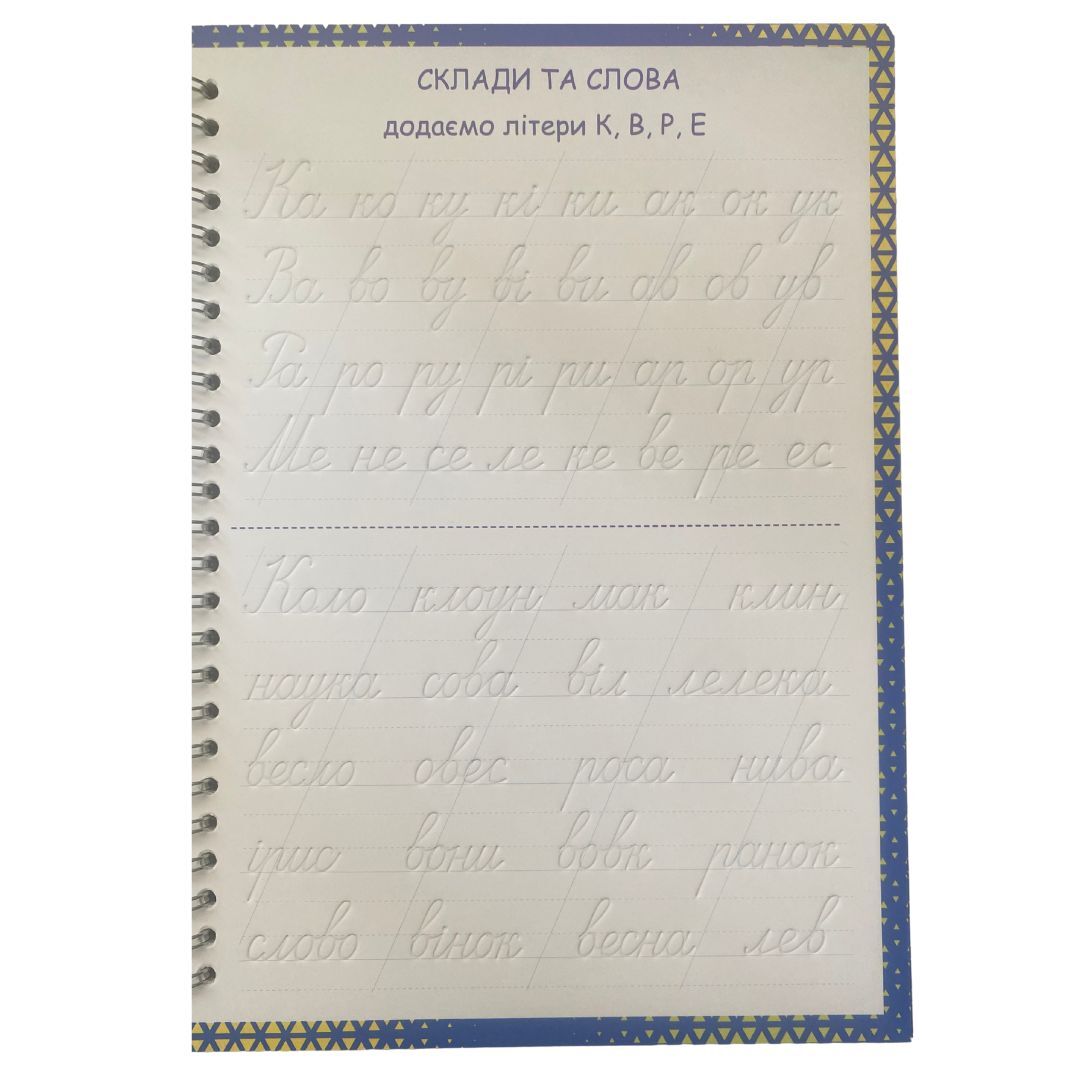 СКЛАДИ ТА СЛОВА
додаємо літери К, В, Р, Е
Ка ко ку кі ки ак ок ук
Ва во ву ві ви ав ов ув
Ра ро ру рі ри ар ор ур
Ме не се ле ке ве ре ес
Коло клоун мак клин
наука сова віл лелека
весло овес роса нива
ірис вони вовк ранок
слово вінок весна лев